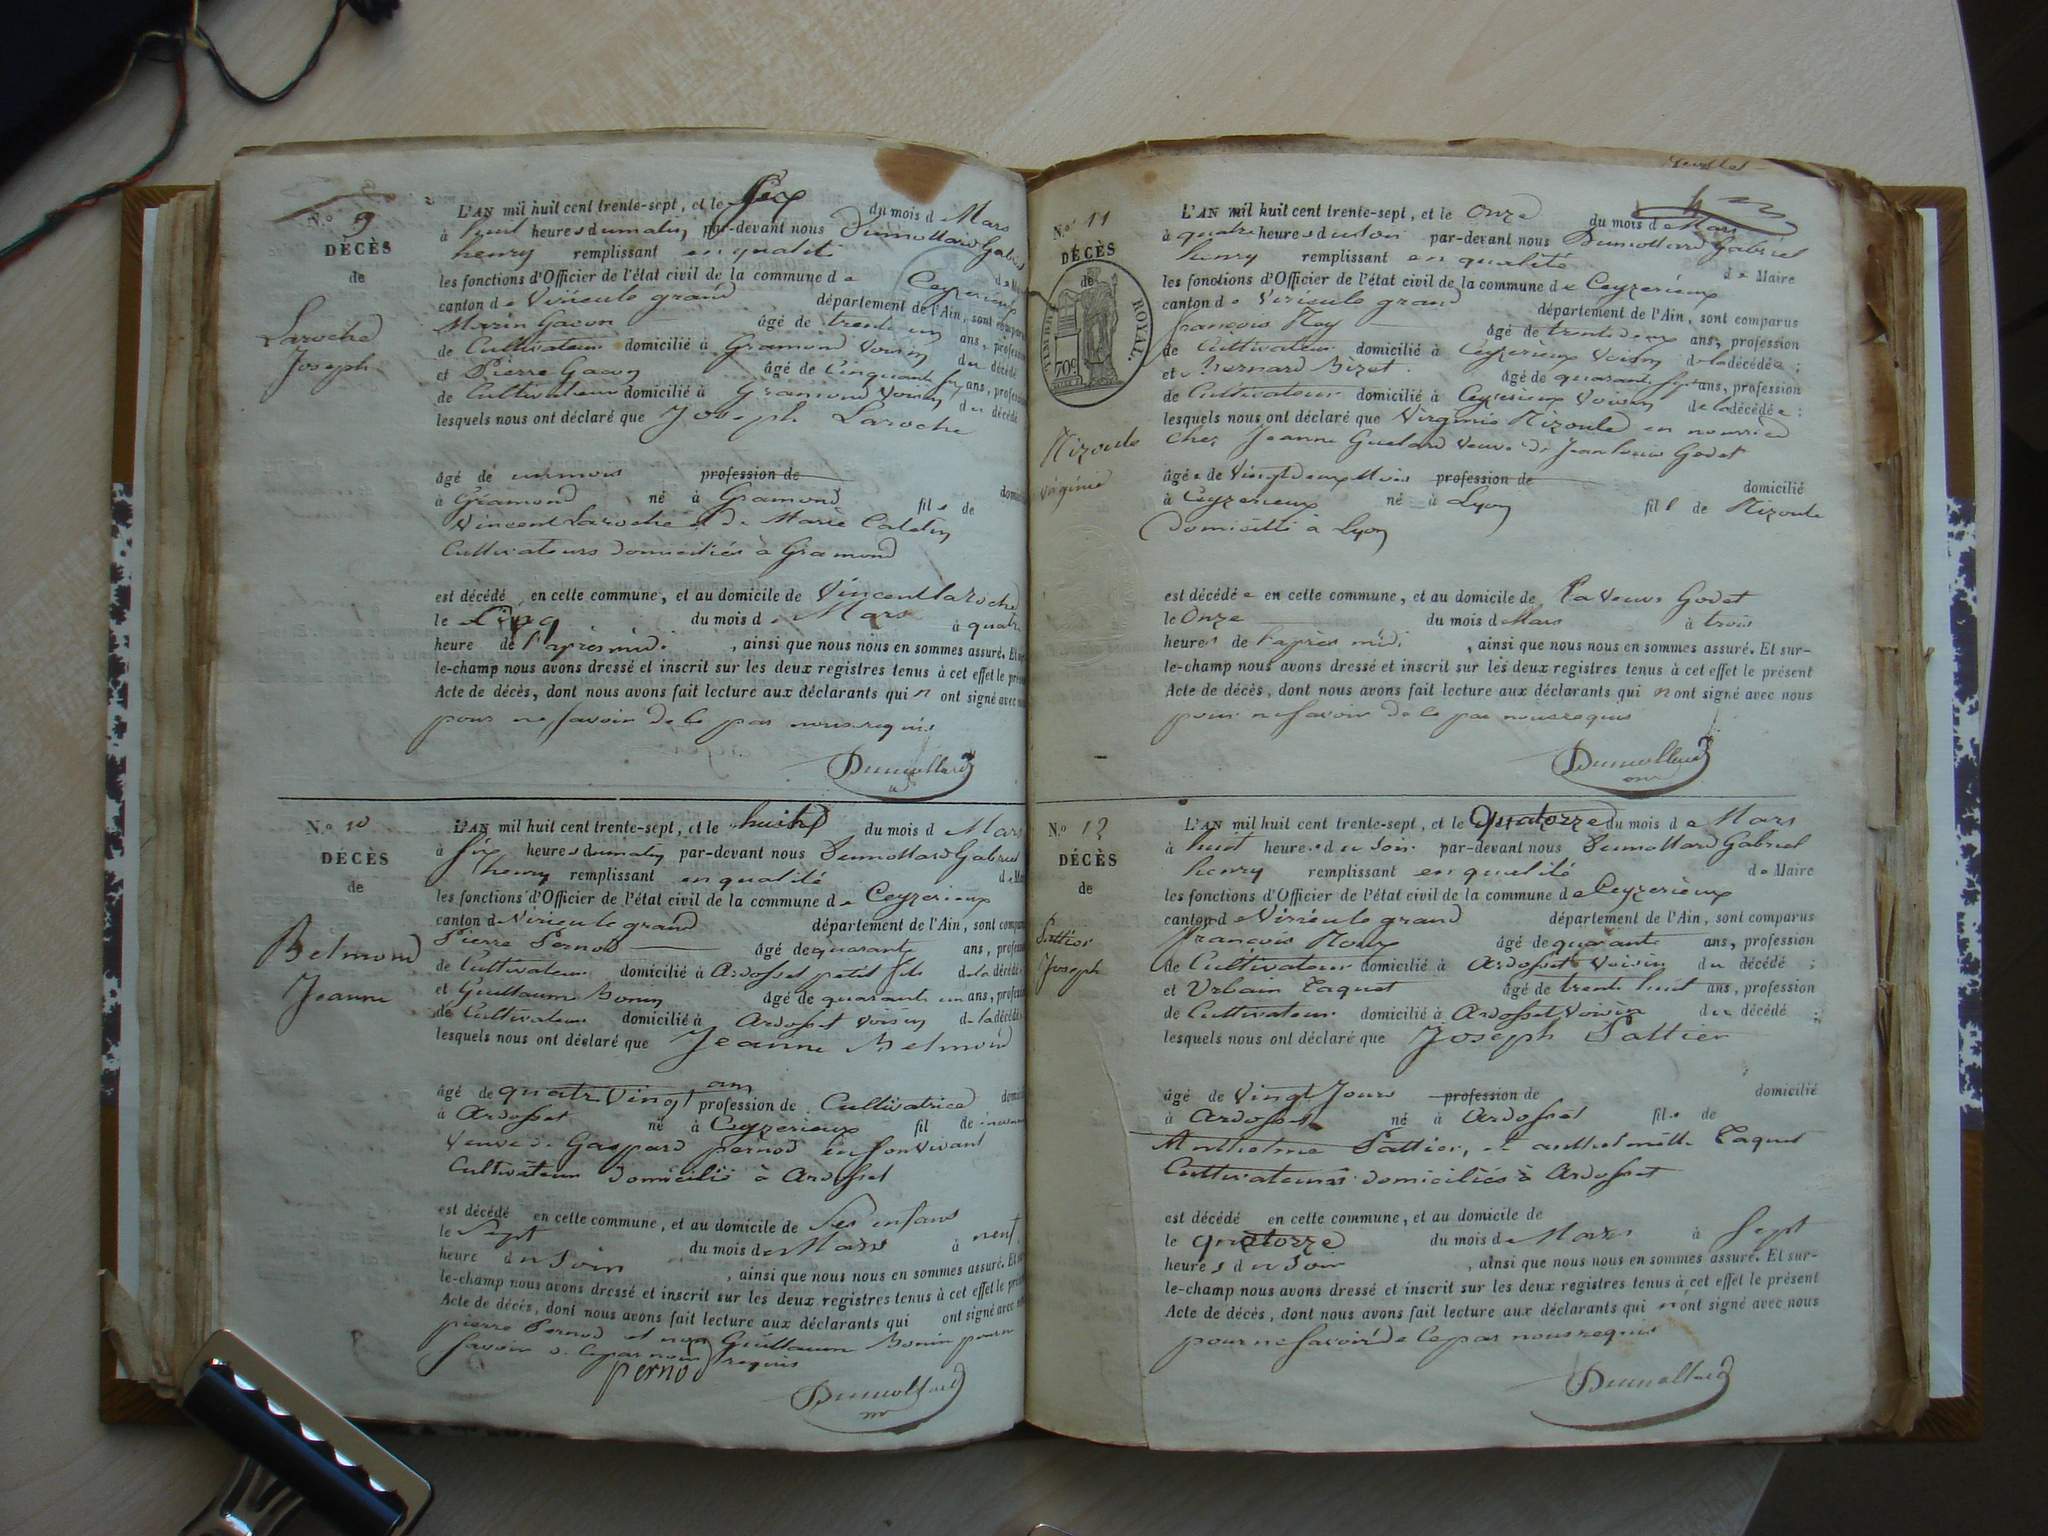 N.º 9
DÉCÈS
de
Laroche
Joseph
L'AN mil huit cent trente-sept, et le Six du mois d Mars
à huit heures du matin, par-devant nous Dumollard Gabriel
henry remplissant en qualité de Ma
les fonctions d'Officier de l'état civil de la commune de Ceyzerieux
canton de Virieu le grand département de l'Ain, sont compar
Marin Gacon âgé de trente un ans, profess
de Cultivateur domicilié à Gramond Voisin du décédé
et Pierre Gacon âgé de Cinquante six ans, profess
de Cultivateur domicilié à Gramond Voisin du décédé
lesquels nous ont déclaré que Joseph Laroche
âgé de un mois profession de domici
à Gramond né à Gramond fils de
Vincent Laroche et de Marie Catelin
Cultivateurs domiciliés à Gramond
est décédé en cette commune, et au domicile de Vincent Laroche
le Cinq du mois de Mars à quatre
heure de l'après midi, ainsi que nous nous en sommes assuré. Et sur-
le-champ nous avons dressé et inscrit sur les deux registres tenus à cet effet le prés
Acte de décès, dont nous avons fait lecture aux déclarants qui n ont signé avec n
pour ne savoir de ce par nous requis
Dumollard
N.º 10
DÉCÈS
de
Belmond
Jeanne
L'AN mil huit cent trente-sept, et le huit du mois d Mars
à six heures du matin par-devant nous Dumollard Gabriel
henry remplissant en qualité de Mai
les fonctions d'Officier de l'état civil de la commune de Ceyzerieux
canton de Virieu le grand département de l'Ain, sont compar
Pierre Pernod âgé de quarante ans, profess
de Cultivateur domicilié à Ardosset petit fils de la décédée
et Guillaume Bonin âgé de quarante un ans, profess
de Cultivateur domicilié à Ardosset Voisin de la décédée
lesquels nous ont déclaré que Jeanne Belmond
âgé de quatre Vingt ans profession de Cultivatrice domici
à Ardosset né à Ceyzerieux fil de
Veuve de Gaspard pernod en son vivant
Cultivateur domicilié à Ardosset
est décédé en cette commune, et au domicile de Ses enfans
le Sept du mois de Mars à neuf
heure du Soir, ainsi que nous nous en sommes assuré. Et su
le-champ nous avons dressé et inscrit sur les deux registres tenus à cet effet le prés
Acte de décès, dont nous avons fait lecture aux déclarants qui ont signé avec n
pierre Pernod et non Guillaume Bonin pour ne
savoir de ce par nous requis
pernod
Dumollard
N.º 11
DÉCÈS
de
TIMBRE ROYAL.
70c
Rizoule
virginie
L'AN mil huit cent trente-sept, et le Onze du mois d Mars
à quatre heures du soir par-devant nous Dumollard Gabriel
henry remplissant en qualité de Maire
les fonctions d'Officier de l'état civil de la commune de Ceyzerieux
canton de Virieu le grand département de l'Ain, sont comparus
françois Roy âgé de trente deux ans, profession
de Cultivateur domicilié à Ceyzerieux Voisin de la décédée ;
et Bernard Bizet âgé de quarante sept ans, profession
de Cultivateur domicilié à Ceyzerieux Voisin de la décédée :
lesquels nous ont déclaré que Virginie Rizoule en nourrice
chez Jeanne Guelard Veuve de Jean louis Godet
âgée de Vingt deux Mois profession de domicilié
à Ceyzerieux né à Lyon fill de Rizoule
domicilié à Lyon
est décédée en cette commune, et au domicile de la Veuve Godet
le Onze du mois de Mars à trois
heures de l'après midi, ainsi que nous nous en sommes assuré. Et sur-
le-champ nous avons dressé et inscrit sur les deux registres tenus à cet effet le présent
Acte de décès, dont nous avons fait lecture aux déclarants qui n ont signé avec nous
pour ne savoir de ce par nous requis
Dumollard
N.º 12
DÉCÈS
de
Pattier
Joseph
L'AN mil huit cent trente-sept, et le Quatorze du mois de Mars
à huit heures du soir par-devant nous Dumollard Gabriel
henry remplissant en qualité de Maire
les fonctions d'Officier de l'état civil de la commune de Ceyzerieux
canton de Virieu le grand département de l'Ain, sont comparus
françois Roux âgé de quarante ans, profession
de Cultivateur domicilié à Ardosset Voisin du décédé ;
et Urbain Taquet âgé de trente huit ans, profession
de Cultivateur domicilié à Ardosset Voisin du décédé ;
lesquels nous ont déclaré que Joseph Pattier
âgé de Vingt Jours profession de domicilié
à Ardosset né à Ardosset fils de
Anthelme Pattier, et anthelmette Taquet
Cultivateurs domiciliés à Ardosset
est décédé en cette commune, et au domicile de
le quatorze du mois de Mars à Sept
heures du Soir, ainsi que nous nous en sommes assuré. Et sur-
le-champ nous avons dressé et inscrit sur les deux registres tenus à cet effet le présent
Acte de décès, dont nous avons fait lecture aux déclarants qui n'ont signé avec nous
pour ne savoir de ce par nous requis
Dumollard